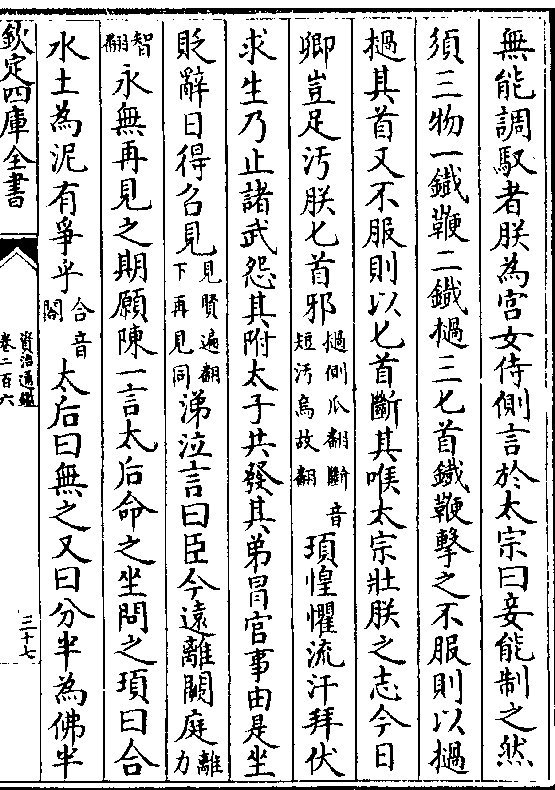 無能調馭者朕為宮女侍側言於太宗曰妾能制之然
須三物一鐵鞭二鐵檛三匕首鐵鞭擊之不服則以檛
檛其首又不服則以匕首斷其喉太宗壯朕之志今日
卿豈足汚朕匕首邪檛側瓜翻斷音短汚烏故翻頊惶懼流汗拜伏
求生乃止諸武怨其附太子共發其弟冒官事由是坐
貶辭日得召見見賢遍翻下再見同涕泣言曰臣今遠離闕庭離力
智翻永無再見之期願陳一言太后命之坐問之頊曰合
水土為泥有爭乎合音閤太后曰無之又曰分半為佛半
欽定四庫全書
資治通鑑
卷二百六
三十七